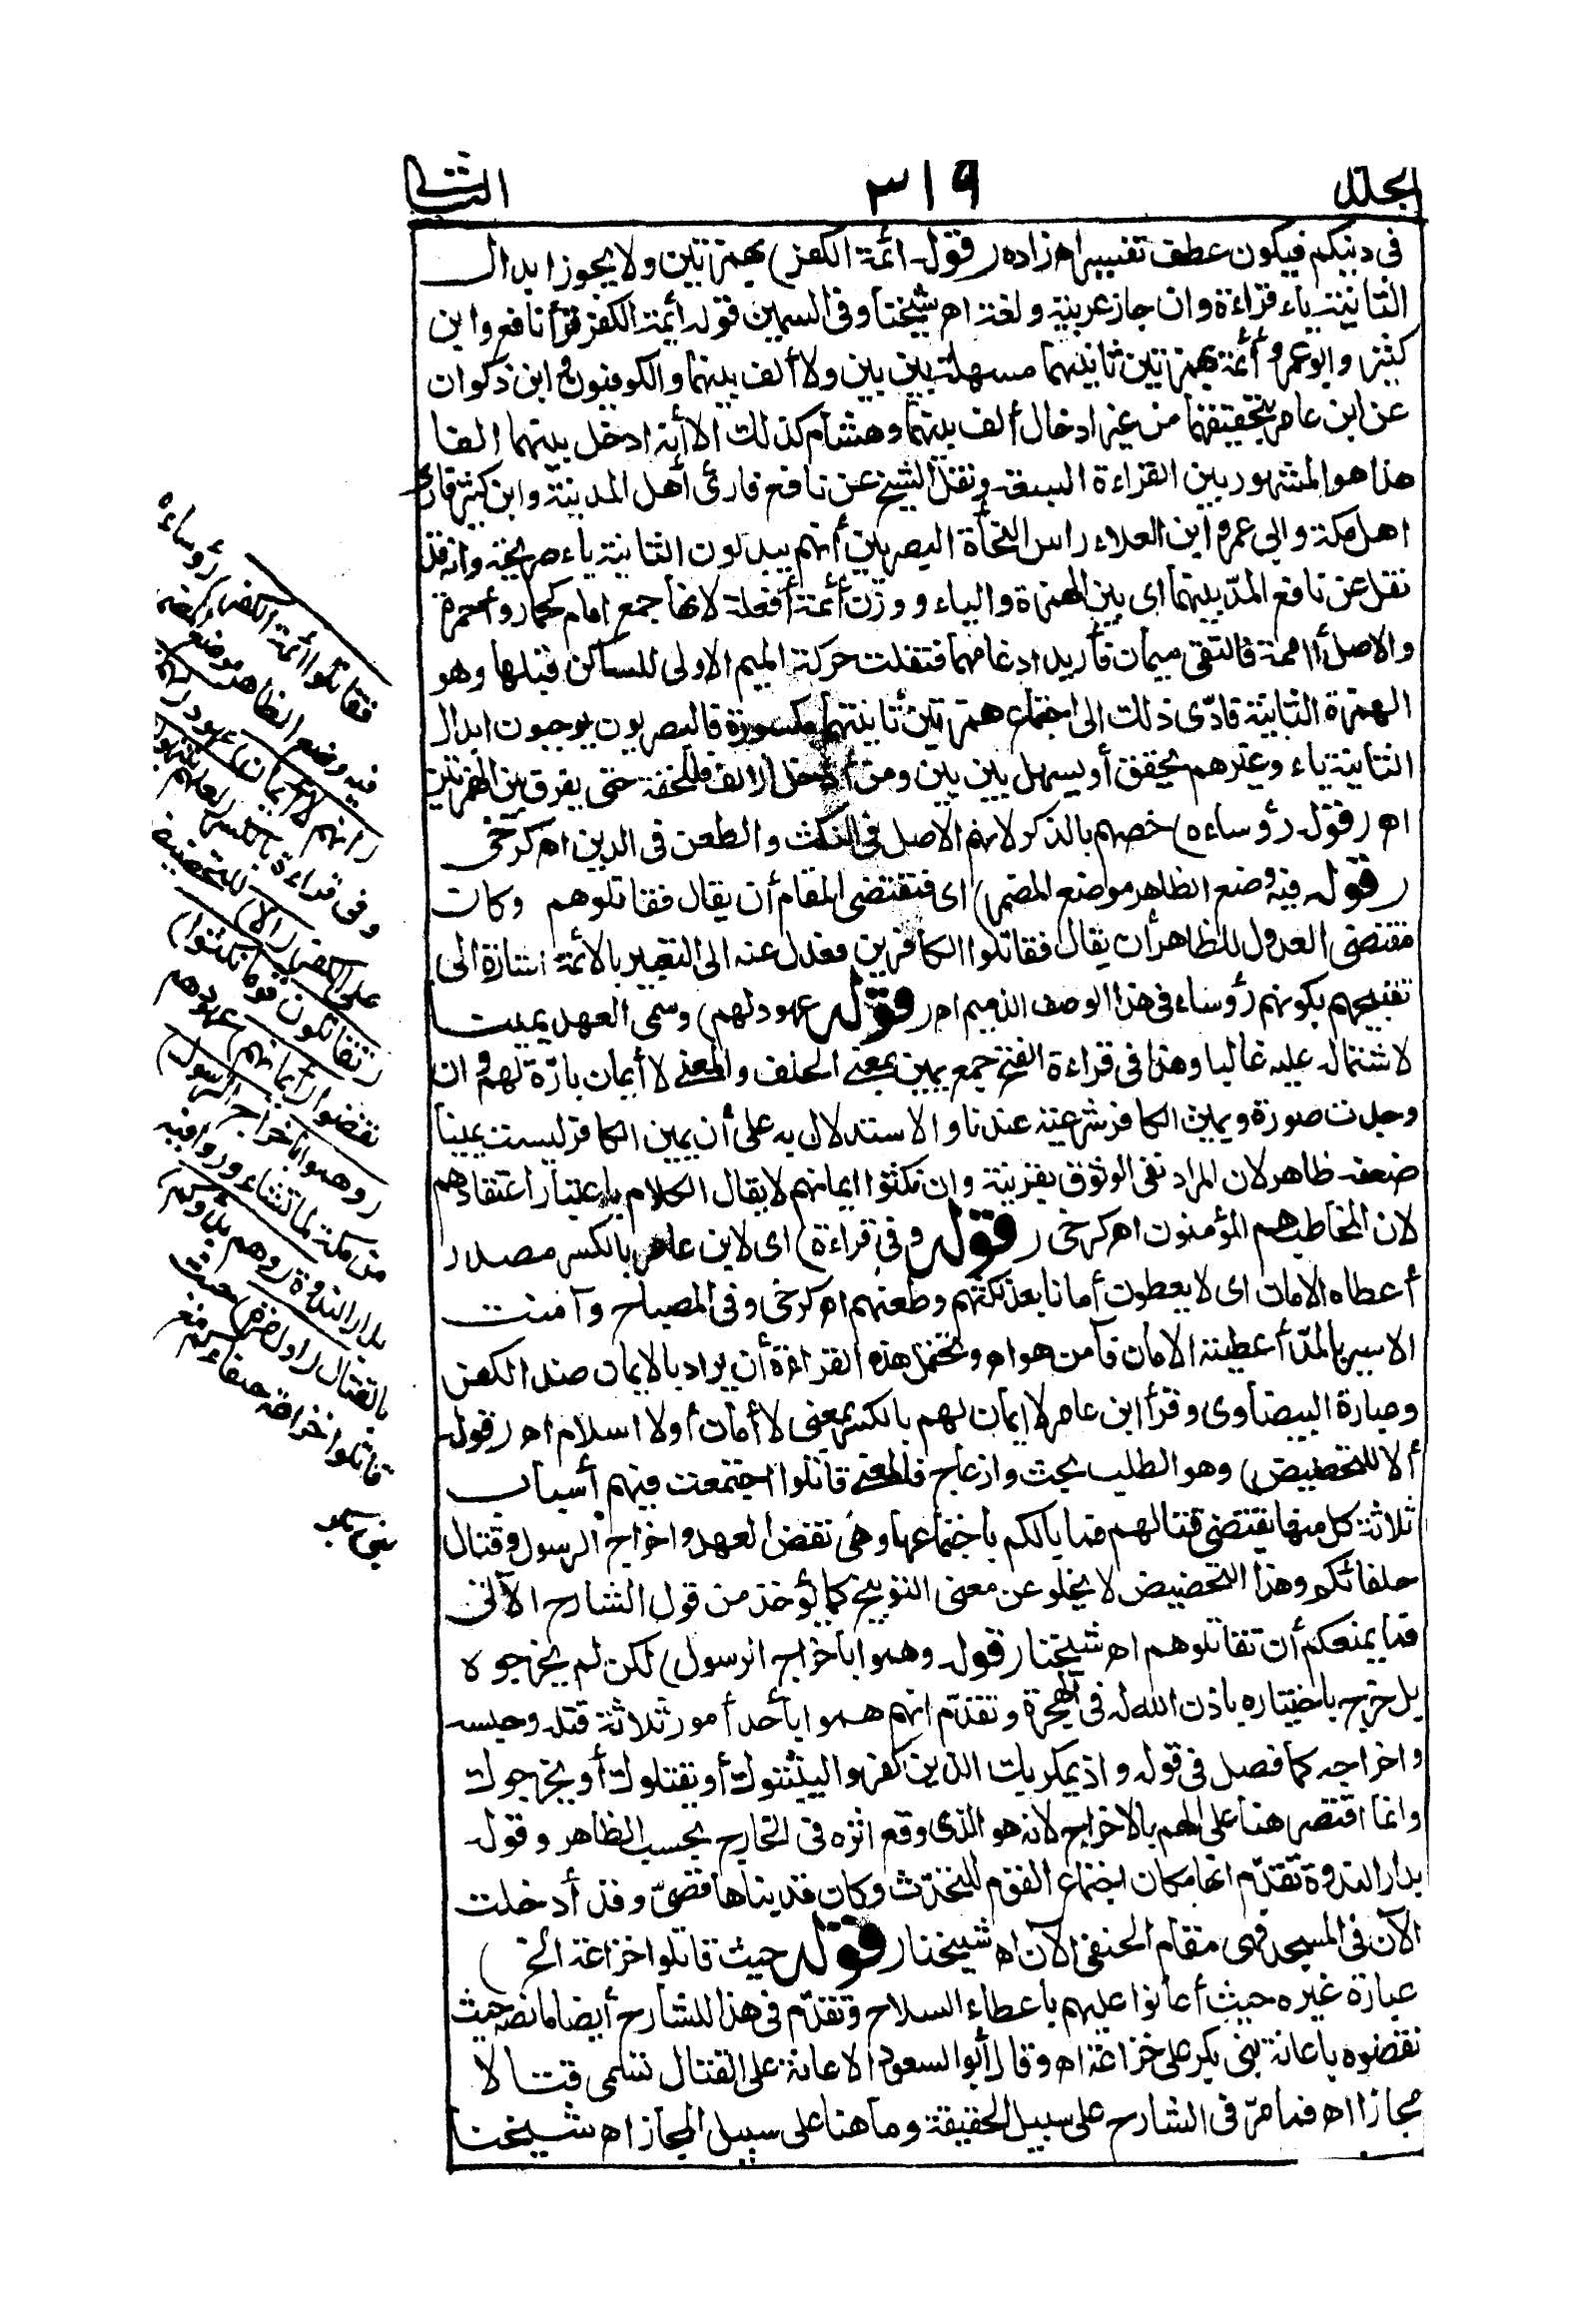 المجلد ٣١٩ الثاني
في دينكم فيكون عطف تفسير اه زاده (قوله أئمة الكفر) بهمزتين ولا يجوز ابدال
الثانية ياء قراءة وان جاز عربية ولغة اه شيخنا وفي السمين قوله أئمة الكفر قرأ نافع وابن
كثير وابو عمرو أئمة بهمزتين ثانيتهما مسهلة بين بين ولا ألف بينهما والكوفيون وابن ذكوان
عن ابن عامر بتحقيقهما من غير ادخال ألف بينهما وهشام كذلك الا أنه ادخل بينهما الفا
هذا هو المشهور بين القراءة السبعة ونقل الشيخ عن نافع قارئ أهل المدينة وابن كثير قارئ
اهل مكة وابي عمرو ابن العلاء راس النحأة البصريين أنهم يبدلون الثانية ياء صريحة وانه قد
نقل عن نافع المدّ بينهما اي بين الهمزة والياء ووزن أئمة أفعلة لانها جمع امام كحمار وأحمرة
والاصل أاممة فالتقى ميمان فأريد ادغامهما فنقلت حركة الميم الاولى للساكن قبلها وهو
الهمزة الثانية فادّى ذلك الى اجتماع همزتين ثانيتهما مكسورة فالبصريون يوجبون ابدال
الثانية ياء وغيرهم يحقق أو يسهل بين بين ومن أدخل الالف فللخفة حتى يفرق بين الهمزتين
اه (قوله رؤساءه) خصهم بالذكر لانهم الاصل في النكث والطعن في الدين اه كرخى
(قوله فيه وضع الظاهر موضع المضمر) اى فتقتضى المقام أن يقال فقاتلوهم وكان
مقتضى العدول للظاهر أن يقال فقاتلوا الكافرين فعدل عنه الى التعبير بالأئمة اشارة الى
تقبيحهم بكونهم رؤساء في هذا الوصف الذميم اه (قوله عهود لهم) وسمى العهد يمينا
لاشتماله عليه غالبا وهذا في قراءة الفتح جمع يمين بمعنى الحلف والمعنى لا أيمان بارّة لهم وان
وجدت صورة ويمين الكافر شرعية عندنا والاستدلال به على أن يمين الكافر ليست يمينا
ضعفه ظاهر لان المراد نفى الوثوق بقرينة وان نكثوا ايمانهم لا يقال الكلام باعتبار اعتقادهم
لان المخاطب هم المؤمنون اه كرخى (قوله وفي قراءة) اى لابن عامر بالكسر مصدر
أعطاه الامان اى لا يعطون أمانا بعد نكثهم وطعنهم اه كرخى وفي المصباح وآمنت
الاسير بالمدّ أعطيته الامان فأمن هو اه وتحتمل هذه القراءة أن يراد بالايمان ضد الكفر
وعبارة البيضاوى وقرأ ابن عامر لا ايمان لهم بالكسر بمعنى لا أمان أو لا اسلام اه (قوله
ألا للتحضيض) وهو الطلب بحث وازعاج فالمعنى قاتلوا اجتمعت فيهم أسباب
ثلاثة كل منها يقتضى قتالهم فما بالكم باجتماعها وهى نقض العهد واخراج الرسول وقتال
حلفائكم وهذا التحضيض لا يخلو عن معنى التوبيخ كما يؤخذ من قول الشارح الآتى
فما يمنعكم أن تقاتلوهم اه شيخنا (قوله وهموا باخراج الرسول) لكن لم يخرجوه
بل خرج باختياره باذن الله له في الهجرة وتقدّم انهم هموا بأحد أمور ثلاثة قتله وحبسه
واخراجه كما فصل في قوله واذ يمكر بك الذين كفروا ليثبتوك أو يقتلوك أو يخرجوك
وانما اقتصر هنا على الهم بالاخراج لانه هو الذى وقع اثره في الخارج بحسب الظاهر وقوله
بدار الندوة تقدّم انها مكان اجتماع القوم للتحدّث وكان قد بناها قصىّ وقد أدخلت
الآن في المسجد فهى مقام الحنفى الآن اه شيخنا (قوله حيث قاتلوا خزاعة الخ)
عبارة غيره حيث أعانوا عليهم باعطاء السلاح وتقدّم في هذا للشارح أيضا ما نصه حيث
نقضوه باعانة بنى بكر على خزاعة اه وقال أبو السعود الاعانة على القتال تسمى قتالا
مجازا اه فما مرّ في الشارح على سبيل الحقيقة وما هنا على سبيل المجاز اه شيخنا
فقاتلوا أئمة الكفر) رؤساءه
فيه وضع الظاهر موضع المضمر
(انهم لا أيمان) عهود (لهم)
وفي قراءة بالكسر
(ألا) للتحضيض
(تقاتلون قوما نكثوا)
نقضوا (أيمانهم) عهودهم
(وهموا باخراج الرسول)
من مكة لما تشاوروا فيه
بدار الندوة (وهم بدؤكم)
بالقتال (أول مرة) حيث
قاتلوا خزاعة حلفاءكم مع
بنى بكر